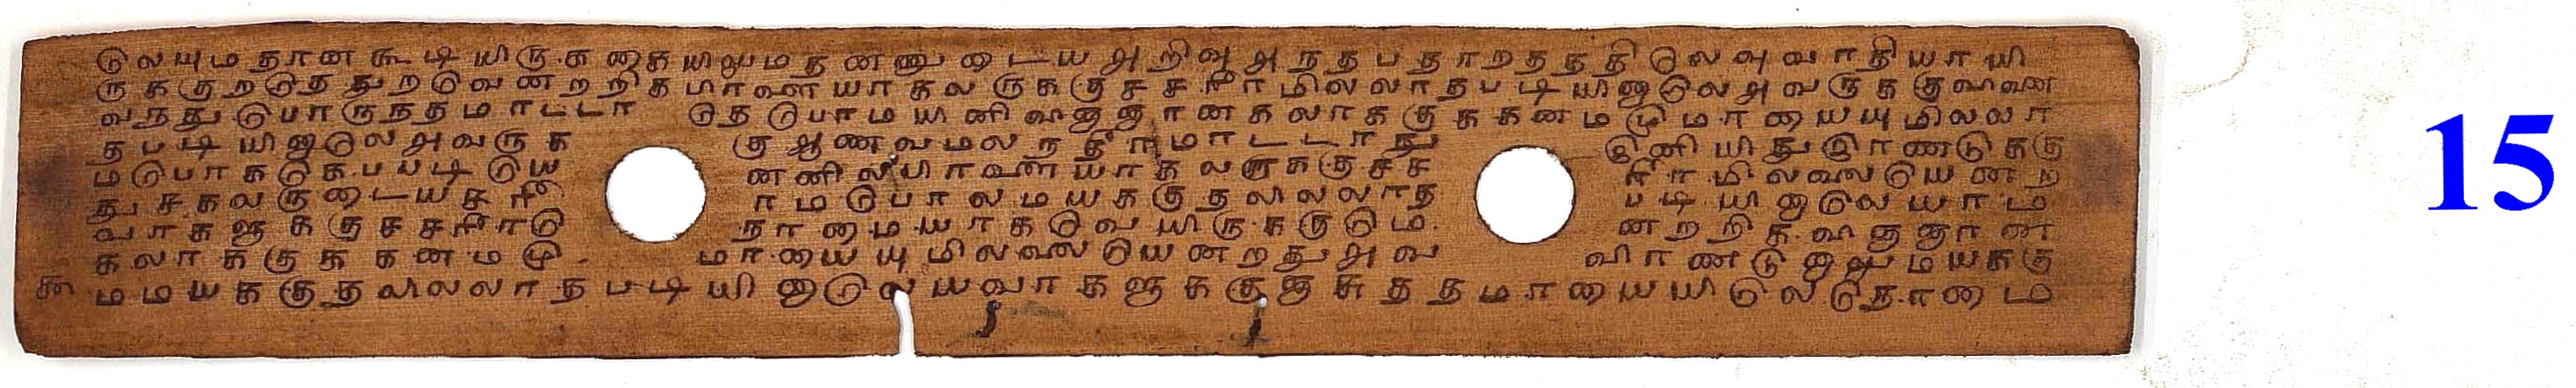 லெயுமதானகூடியிருககையிலுமதனனுடையஅறிவுஅநதபதாறதததிலெவுவாதியாயி
ருககுறதெததுறவெனறறிகபிரளயாகலருககுசசரீரமிலலாதபடியினாலெஅவருககுவிஞ
வநதுபொருநதமாடடா தெபொமயினிவிஞஞானகலாககுககனமமுமாயையுமிலலா
தபடியினாலெஅவருக குஆணவமலநதீரமாடடாது இனியிதுஇரணடுககு
மபொககெகபபடியெ னனிலபிரளயாகலருககுசச ரீரமிலலையெனற
துசகலருடையசரீ ரமபொலமயககுதலிலலாத படியினாலெயாம
வாகஞககுசசரீர நாமையாகவெயிருககுமெ னறறிகவிஞஞான
கலாககுககனமமு மாயையுமிலலையெனறதுஅவ விரணடினாலுமயககு
மமயககுதலிலலாதபடியினாலெயவாகஞககுஞசுததமாயையிலெதெநாமை
15